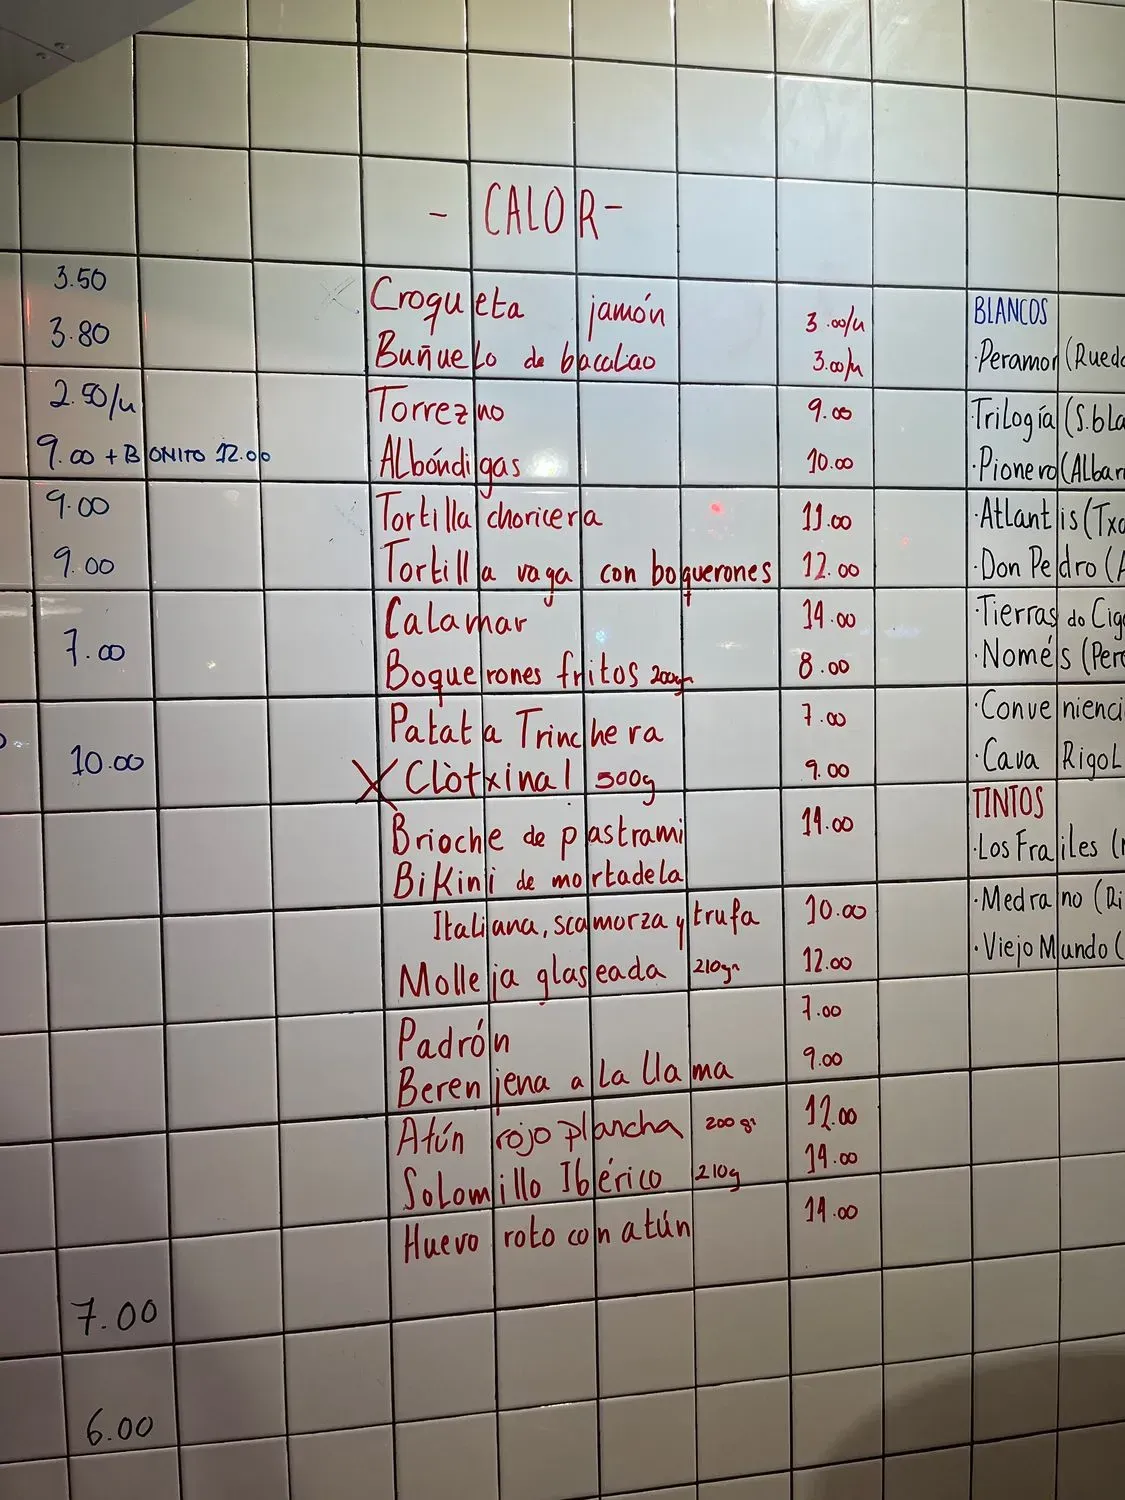 - CALOR -
3.50
3.80
2.50/u
9.00 + BONITO 12.00
9.00
9.00
7.00
10.00
7.00
6.00
Croqueta jamón 3.00/u
Buñuelo de bacalao 3.00/u
Torrezno 9.00
Albóndigas 10.00
Tortilla choricera 11.00
Tortilla vaga con boquerones 12.00
Calamar 14.00
Boquerones fritos 200gr 8.00
Patata Trinchera 7.00
X Clòtxinal 500g 9.00
Brioche de pastrami 14.00
Bikini de mortadela
Italiana, scamorza y trufa 10.00
Molleja glaseada 210gr 12.00
Padrón 7.00
Berenjena a la llama 9.00
Atún rojo plancha 200gr 12.00
Solomillo Ibérico 210g 14.00
Huevo roto con atún 14.00
BLANCOS
·Peramor (Rueda
Trilogía (S.bla
·Pionero (Albar
·Atlantis (Txa
·Don Pedro (A
·Tierras do Cig
·Només (Per
·Convenienci
·Cava Rigol
TINTOS
·Los Frailes (
·Medrano (Ri
·Viejo Mundo (